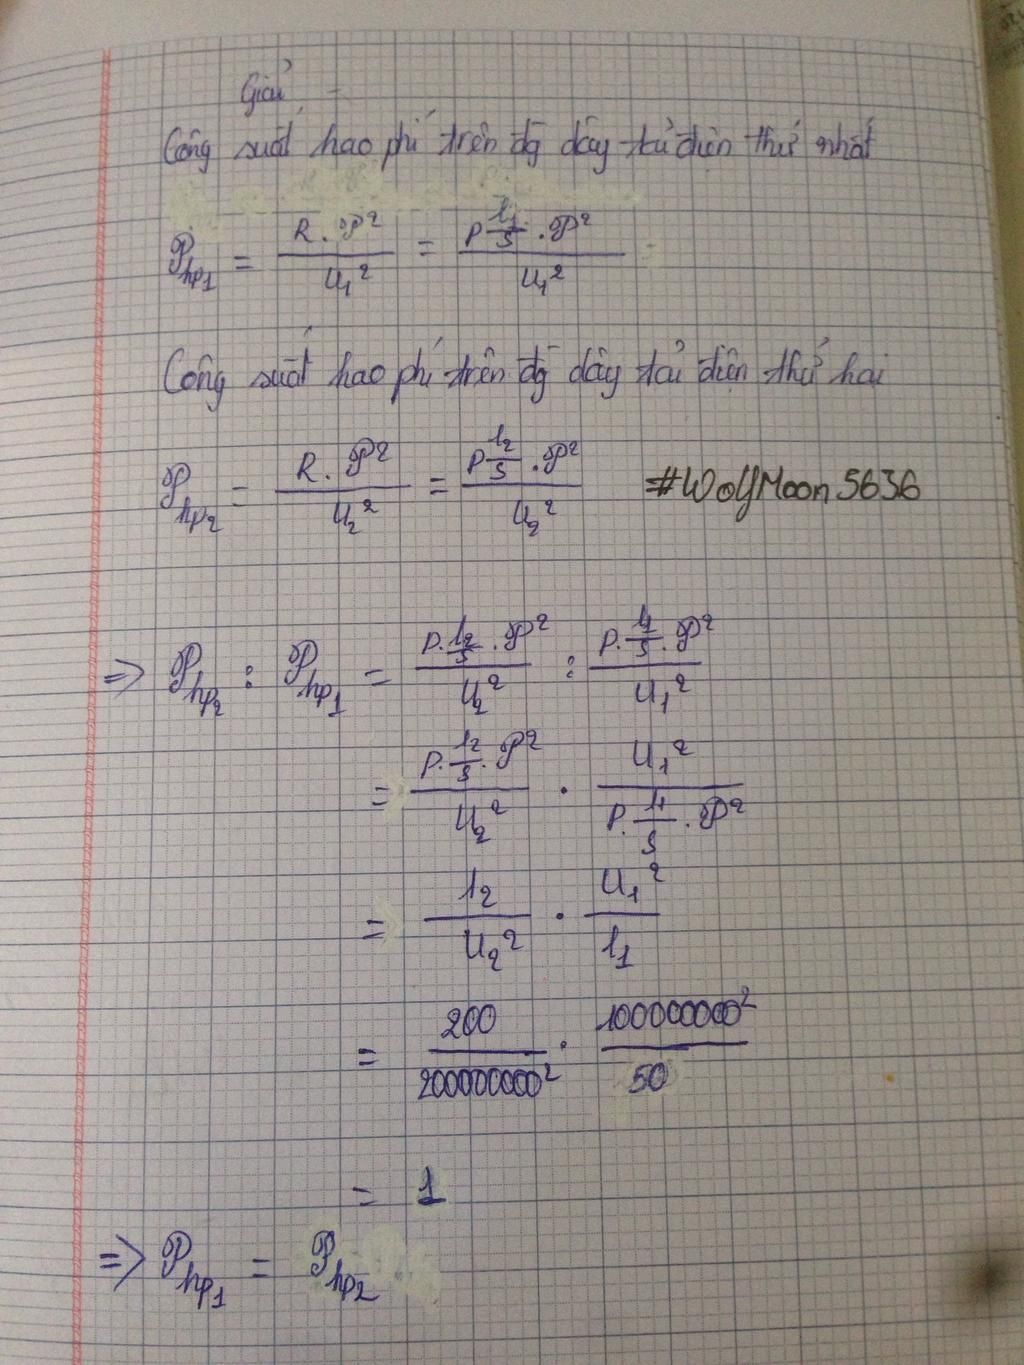 Giải
Công suất hao phí trên đg dây tải điện thứ nhất
𝒫hp1 = R.𝒫² / U1² = P l1/S .𝒫² / U1²
Công suất hao phí trên đg dây tải điện thứ hai
𝒫hp2 = R.𝒫² / U2² = P l2/S .𝒫² / U2²
#WolfMoon5636
=> 𝒫hp2 : 𝒫hp1 = P. l2/S .𝒫² / U2² : P. l1/S .𝒫² / U1²
= P. l2/S .𝒫² / U2² . U1² / P. l1/S .𝒫²
= l2 / U2² . U1² / l1
= 200 / 200000000² . 100000000² / 50
= 1
=> 𝒫hp1 = 𝒫hp2